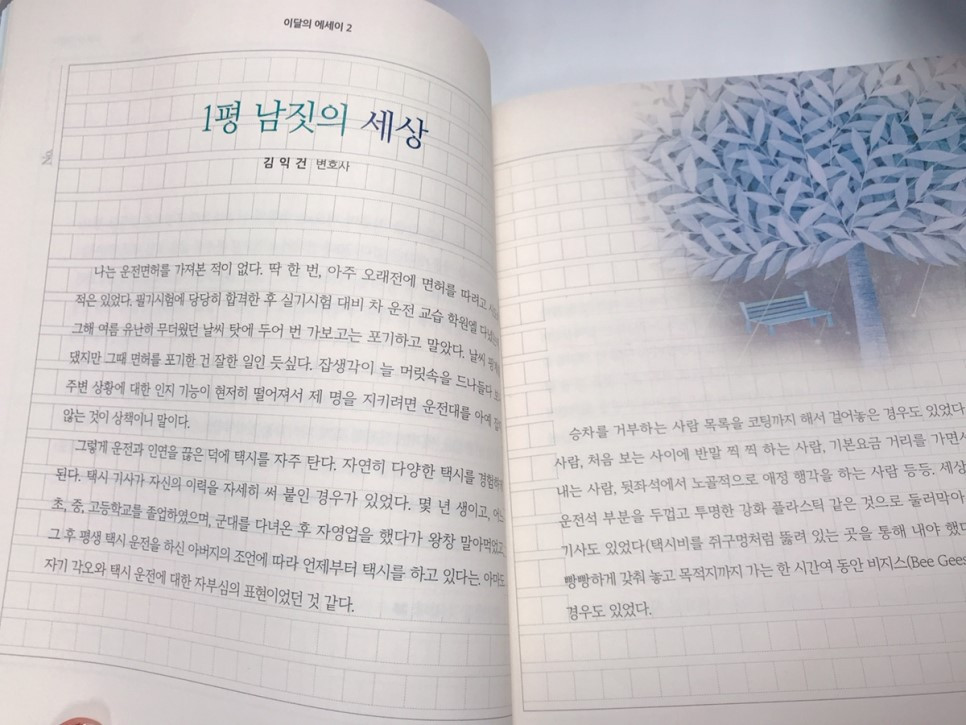 이달의 에세이 2
1평 남짓의 세상
김 익 건 변호사
No.
나는 운전면허를 가져본 적이 없다. 딱 한 번, 아주 오래전에 면허를 따려고
적은 있었다. 필기시험에 당당히 합격한 후 실기시험 대비 차 운전 교습 학원엘
그해 여름 유난히 무더웠던 날씨 탓에 두어 번 가보고는 포기하고 말았다. 날씨
댔지만 그때 면허를 포기한 건 잘한 일인 듯싶다. 잡생각이 늘 머릿속을 드나들다
주변 상황에 대한 인지 기능이 현저히 떨어져서 제 명을 지키려면 운전대를 아예
않는 것이 상책이니 말이다.
그렇게 운전과 인연을 끊은 덕에 택시를 자주 탄다. 자연히 다양한 택시를
된다. 택시 기사가 자신의 이력을 자세히 써 붙인 경우가 있었다. 몇 년 생이고,
초, 중, 고등학교를 졸업하였으며, 군대를 다녀온 후 자영업을 했다가 왕창 말아먹었고,
그 후 평생 택시 운전을 하신 아버지의 조언에 따라 언제부터 택시를 하고 있다는.
자기 각오와 택시 운전에 대한 자부심의 표현이었던 것 같다.
승차를 거부하는 사람 목록을 코팅까지 해서 걸어놓은 경우도 있었다
사람, 처음 보는 사이에 반말 찍 찍 하는 사람, 기본요금 거리를 가면서
내는 사람, 뒷좌석에서 노골적으로 애정 행각을 하는 사람 등등. 세상
운전석 부분을 두껍고 투명한 강화 플라스틱 같은 것으로 둘러막아
기사도 있었다(택시비를 쥐구멍처럼 뚫려 있는 곳을 통해 내야 했다
빵빵하게 갖춰 놓고 목적지까지 가는 한 시간여 동안 비지스(Bee Gees
경우도 있었다.